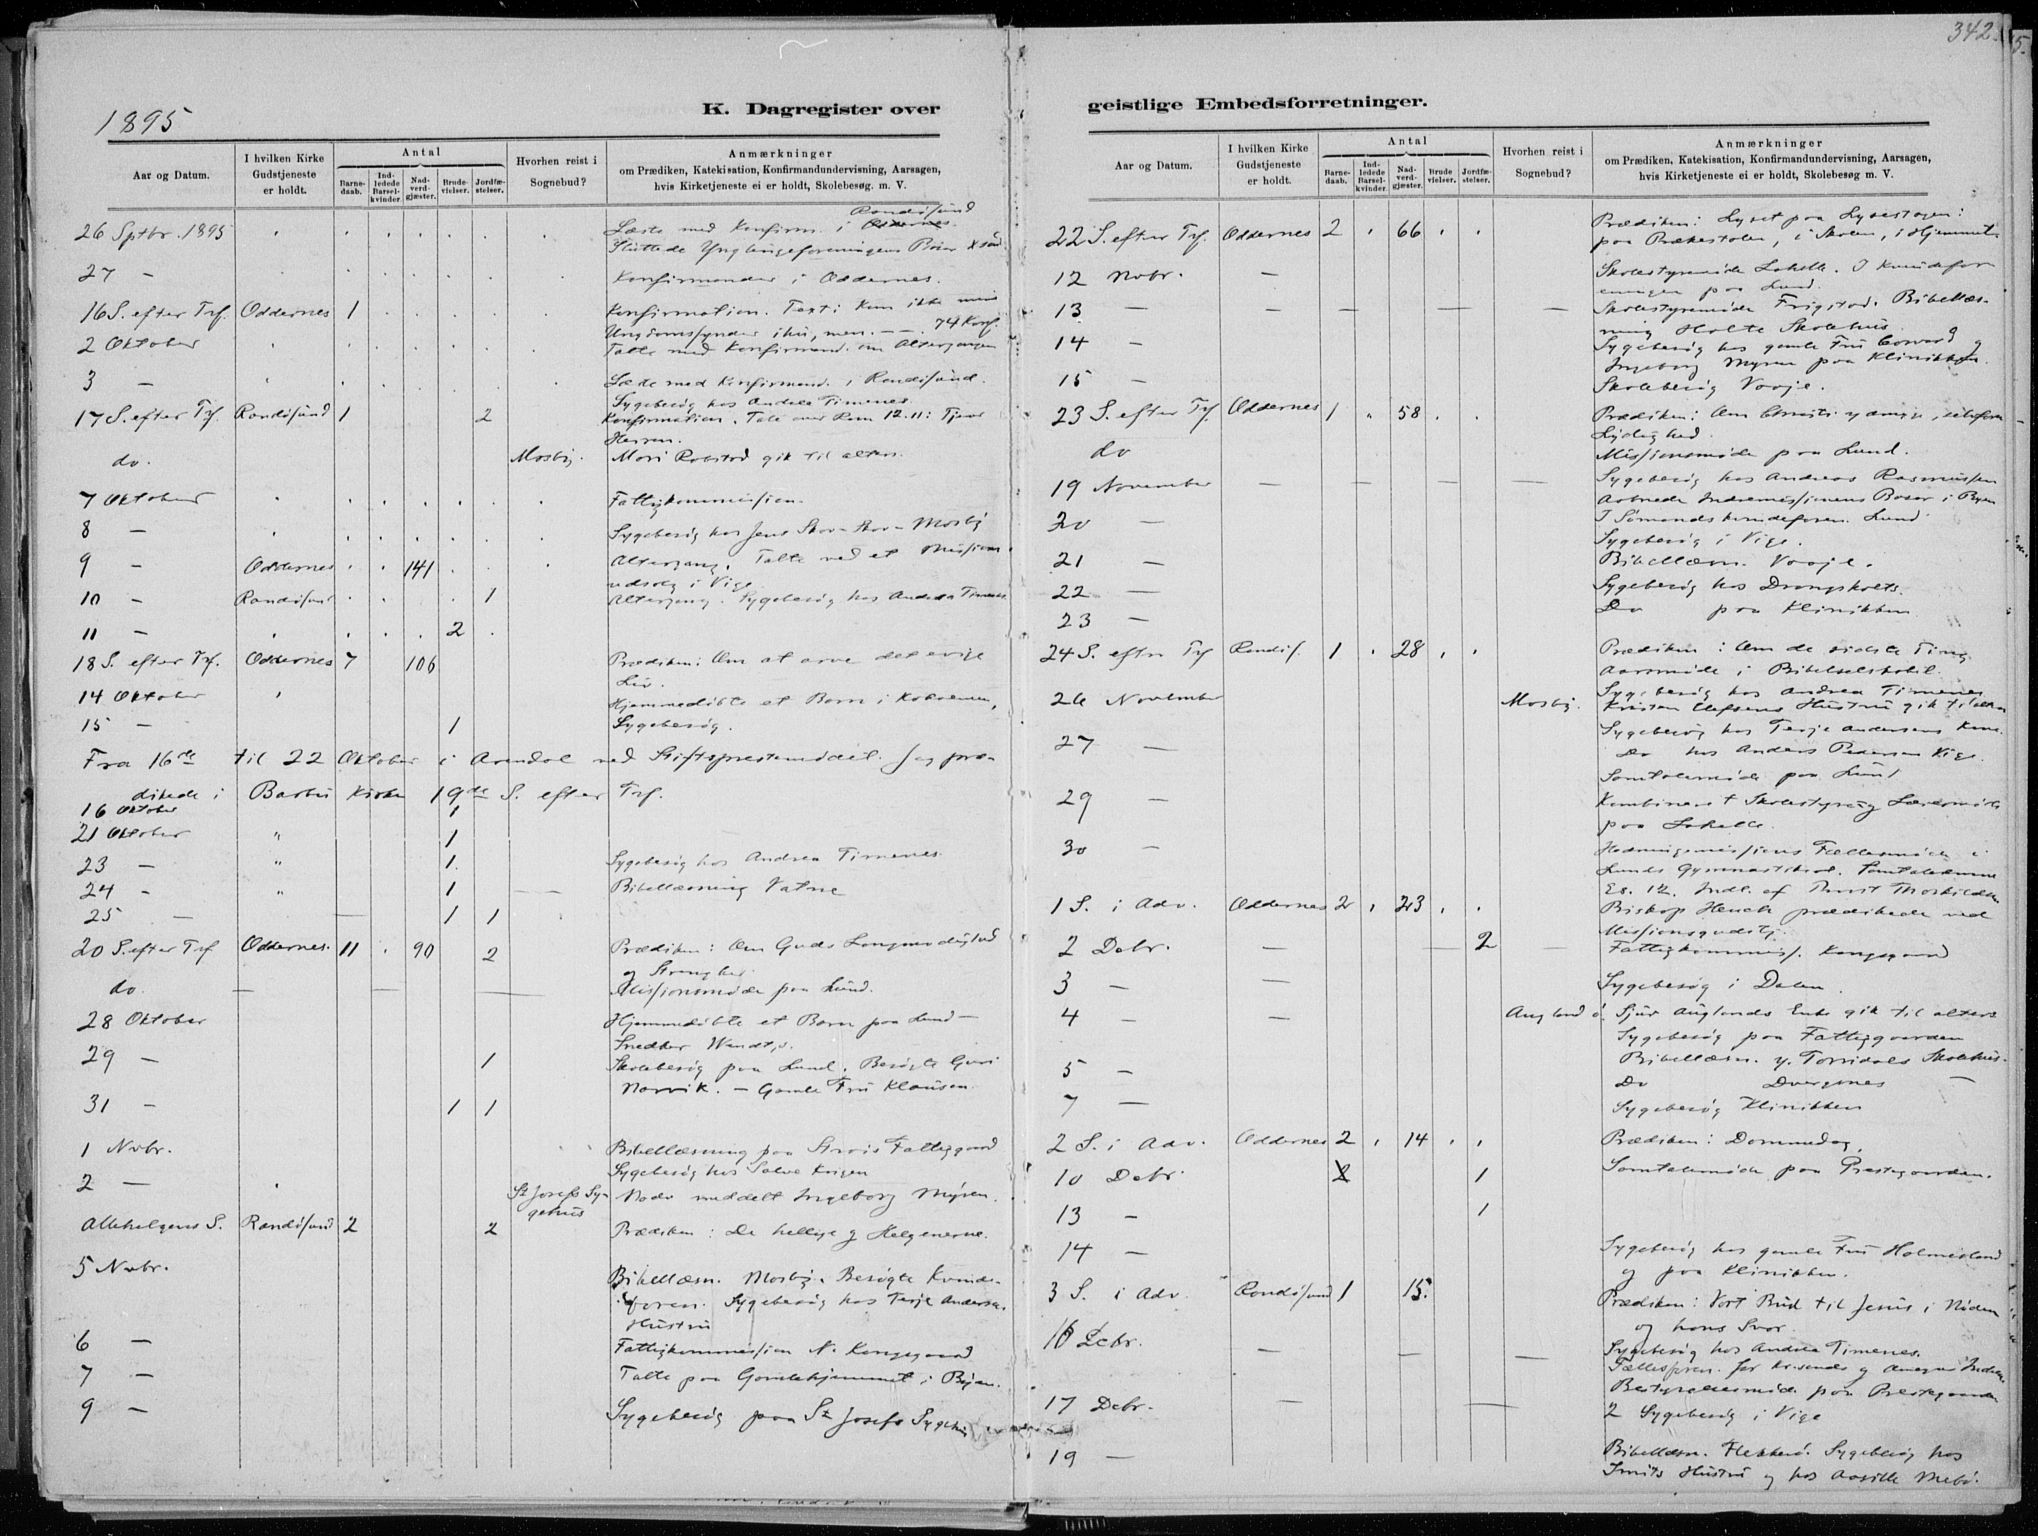 342.
5.
1895
K. Dagregister over
Aar og Datum.
I hvilken Kirke Gudstjeneste er holdt.
Antal
Barne-daab.
Ind-ledede Barsel-kvinder.
Nad-verd-gjæster.
Brude-vielser.
Jordfæ-stelser.
Hvorhen reist i Sognebud?
Anmærkninger
om Prædiken, Katekisation, Konfirmandundervisning, Aarsagen,
hvis Kirketjeneste ei er holdt, Skolebesøg. m. V.
Randøsund
26 Sptbr. 1895 Læste med Konfirm. i Oddernes.
Sluttede Ynglingeforeningens Basar
27 — Konfirmander i Oddernes.
16 S. efter Trf. Oddernes 1 Konfirmation. Text: Kom ikke mine
Ungdomssynder ihu, men. — — . 74 Konf.
2 Oktober Talte med Konfirmand. om Altergangen
3 — Læste med Konfirmand. i Randøsund.
Sygebesøg hos Andrea Timenes.
17 S. efter Trf. Randøsund 1 2 Konfirmation. Tale over Rom 12.11: Tjener
Herren.
do. Mosby. Mari Robstad gik til alters.
7 Oktober Fattigkommission.
8 — Sygebesøg hos Jens Mosby
9 — Oddernes 141 Altergang. Talte ved et Missions
udsalg i Vige
10 — Randøsund 1 Altergang. Sygebesøg hos Andrea Timenes
11 — 2
18 S. efter Trf. Oddernes 7 106 Prædiken: Om at arve det evige
Liv.
14 Oktober Hjemmedøbte et Barn i
15 — 1 Sygebesøg.
Fra 16de til 22 Oktober i Arendal ved Stiftsprestemødet. Jeg præ-
dikede i Barbu Kirke 19de S. efter Trf.
16 Oktober 1
21 Oktober " 1
23 — " 1. Sygebesøg hos Andrea Timenes.
24 - " 1 Bibellæsning Vatne
25 — 1 1
20 S. efter Trf Oddernes. 11 90 2 Prædiken: Om Guds Langmodighed
og Strenghed.
do. Missionsmøde paa Lund.
28 Oktober Hjemmedøbte et Barn paa Lund —
Snedker Wendt,s.
29 — 1 Skolebesøg paa Lund. Besøgte Guri
Narvik. — Gamle Fru Klausen.
31 — 1 1
1 Nvbr. Bibellæsning paa Strais Fattiggaard
Sygebesøg hos Salve
2 — St Josefs Sy-gehus Nadv. meddelt Ingeborg Myren.
Allehelgens S. Randøsund 2 2 Prædiken: De hellige og Helgenerne.
5 Nvbr. Bibellæsn. Mosby. Besøgte Kvinde-
foren. Sygebesøg hos Terje Andersens
Hustru
6 — Fattigkommission N. Kongsgaard
7 — Talte paa Gamlehjemmet i Byen.
9 — Sygebesøg paa St Josefs Sygehus
geistlige Embedsforretninger.
Aar og Datum.
I hvilken Kirke Gudstjeneste er holdt.
Antal
Barne-daab.
Ind-ledede Barsel-kvinder.
Nad-verd-gjæster.
Brude vielser.
Jordfæ-stelser.
Hvorhen reist i Sognebud?
Anmærkninger
om Prædiken, Katekisation, Konfirmandundervisning, Aarsagen,
hvis Kirketjeneste ei er holdt, Skolebesøg m. V.
22 S. efter Trf. Oddernes 2 66 Prædiken: Lyset paa Lysestagen:
paa Prækestolen, i Skolen, i Hjemmet.
12 Nvbr. — Skolestyremøde Lahelle. I Kvindefor
eningen paa Lund.
13 — Skolestyremøde Frigstad. Bibellæs-
ning Holte Skolehus
14 — Sygebesøg hos gamle Fru og
Ingeborg Myren paa Klinikken.
15 — Skolebesøg Vaaje.
23 S. efter Trf. Oddernes 1 58 Prædiken: Om Christi
Lydighed.
do Missionsmøde paa Lund.
19 November Sygebesøg hos Andreas Rasmussen
Aabnede Indremissionens Basar i Byen
20 — I Sømandskvindeforen. Lund.
Sygebesøg i Vige.
21 — Bibellæsn. Vaaje.
22 — Sygebesøg hos Drangsholts.
23 — Do paa Klinikken
24 S. efter Trf Randøs. 1 28 Prædiken: Om de sidste Ting.
Aarsmøde i Bibelselskabet.
26 November Mosby. Sygebesøg hos Andrea Timenes
Kristen Olufsens Hustru gik til alters
27 — Sygebesøg hos Terje Andersens Kone
Do hos Anders Pedersen Vige.
Samtalemøde paa Lund
29 — Kombineret Skolestyre og Lærermøde
paa Lahelle.
30 — Hedningemissions Fællesmøde i
Lunds Gymnastiklok. Samtaleemne
Es. 12. Indl. af
1 S. i Adv. Oddernes 2 23 Biskop Heuch prædikede ved
Missionsgudstj.
2 Debr. 2 Fattigkommis. Kongsgaard
3 — Sygebesøg i Dalen.
4 — Augland ø. Sjur Auglands Enke gik til alters
Sygebesøg paa Fattiggaarden
5 — Bibellæsn. y. Torridals Skolehus.
7 — Do Dvergsnes —
Sygebesøg Klinikken
2 S. i Adv. Oddernes 2 14 Prædiken: Dommedag
10 Debr. 2 1 Samtalemøde paa Prestegaarden.
13 — 1
14 — Sygebesøg hos gamle Fru Holmesland
og paa Klinikken.
3 S. i Adv. Randøsund 1 15. Prædiken: Vort Bud til Jesus i Nøden
og hans Svar.
16 Debr. Sygebesøg hos Andrea Timenes.
17 Debr. Bestyrelsesmøde paa Prestegaarden
2 Sygebesøg i Vige
19 — Bibellæsn. Flekkerø. Sygebesøg hos
Smiths Hustru og hos Aasille Mebø.